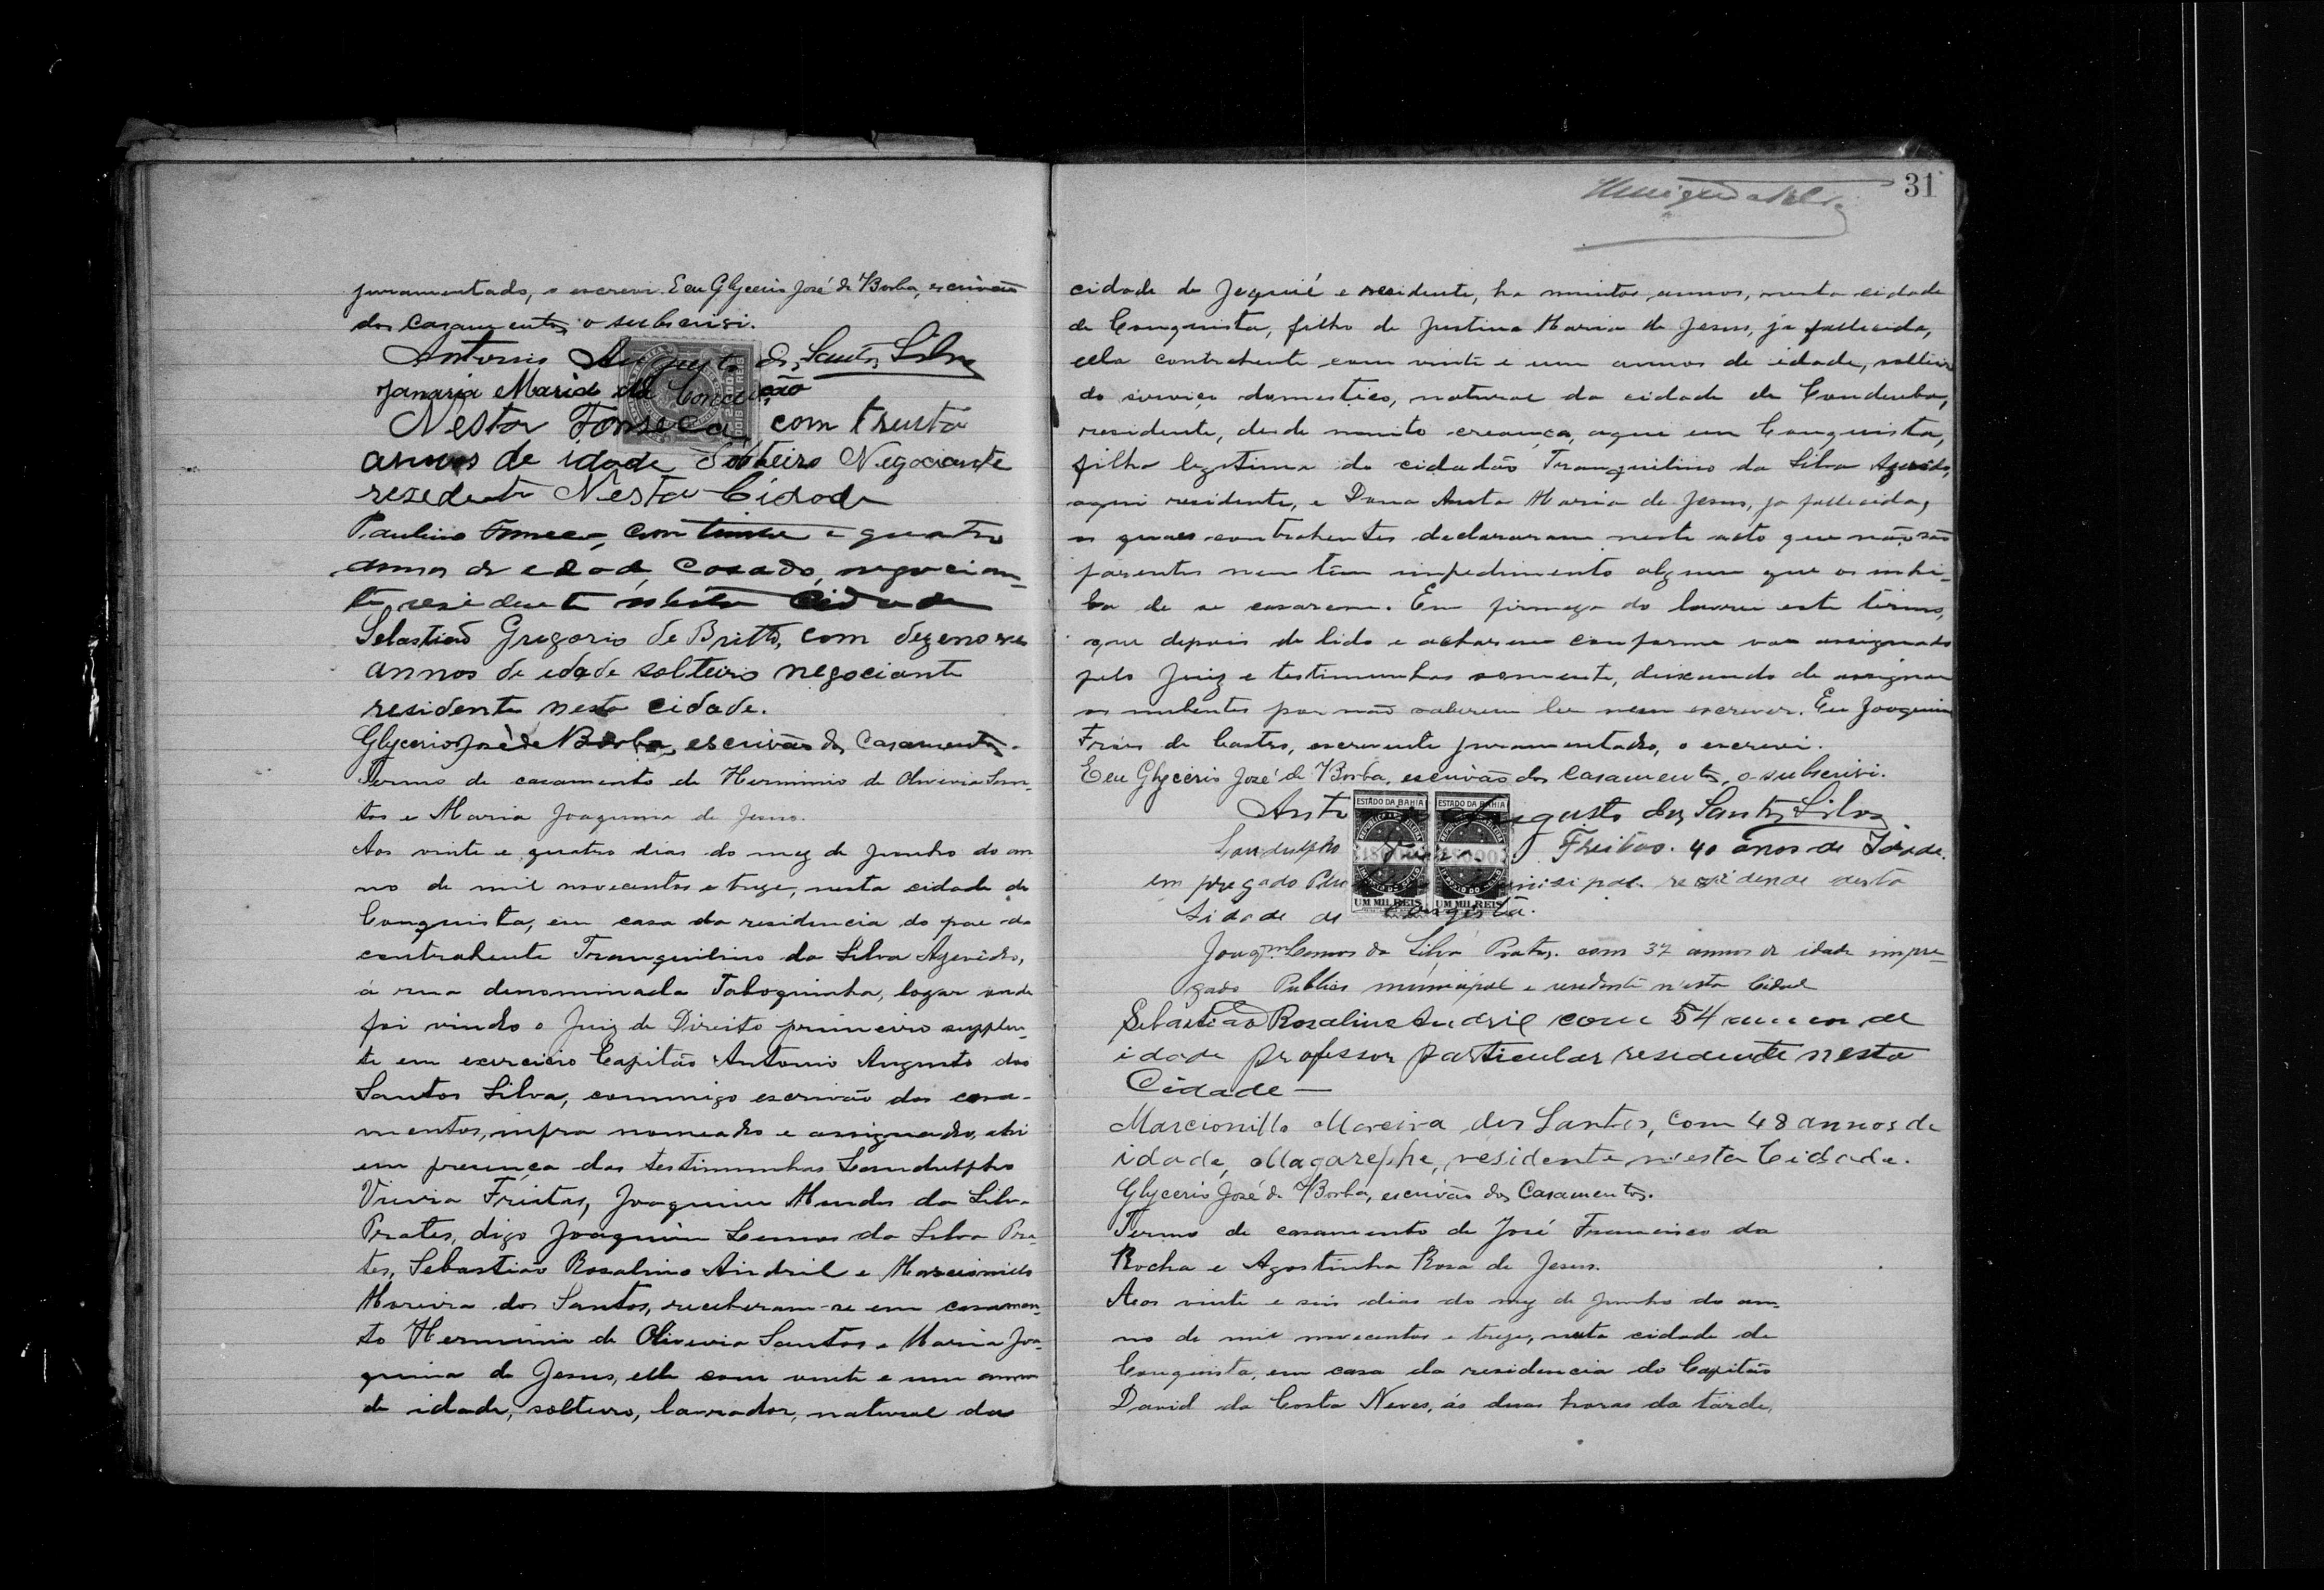 juramentado, o escrevi. E eu Glycerio José de Borba, escrivão
dos casamentos, o subscrivi.
Antonio Augusto dos Santos Silva
Janaria Maria da Conceição
Nestor Fonseca com trinta
annos de idade Solteiro Negociante
rezedente Nesta Cidade
Paulino Fonseca, com trinta e quatro
annos de edade, Casado, negocian-
te residente nesta Cidade
Sebastião Gregorio de Britto, com dezenove
annos de edade solteiro negociante
residente nesta cidade.
Glycerio José de Borba, escrivão dos Casamentos.
Termo de casamento de Herminio de Oliveira San-
tos e Maria Joaquina de Jesus.
Aos vinte e quatro dias do mez de Junho do an
no de mil novecentos e treze, nesta cidade de
Conquista, em casa da residencia do pae da
contrahente Tranquilino da Silva Azevêdo,
á rua denominada Taboquinha, logar onde
foi vindo o Juiz de Direito primeiro supplen-
te em exercicio Capitão Antonio Augusto dos
Santos Silva, commigo escrivão dos casa-
mentos, infra nomeado e assignado, ahi
em presença das testimunhas Landulpho
Vieira Freitas, Joaquim Mendes da Silva
Prates, digo Joaquim Lemos da Silva Pra-
tes, Sebastião Rosalino Andril e Marcionillo
Moreira dos Santos, receberam-se em casamen-
to Herminio de Oliveira Santos e Maria Joa-
quina de Jesus, elle com vinte e um annos
de idade, solteiro, lavrador, natural da
31
cidade de Jequié e residente, ha muitos annos, nesta cidade
de Conquista, filho de Justina Maria de Jesus, já fallecida,
ella contrahente com vinte e um annos de idade, solteira
do serviço domestico, natural da cidade de Condeuba,
residente, desde muito creança, aqui em Conquista,
filha legitima do cidadão Tranquilino da Silva Azevêdo,
aqui residente, e Dona Anta Maria de Jesus, já fallecida,
os quaes contrahentes declararam neste acto que não são
parentes nem têm impedimento algum que os inhi-
ba de se casarem. Em firmeza do lavrei este termo,
que depois de lido e acharem conforme vae assignado
pelo Juiz e testimunhas somente, deixando de assignar
os nubentes por não saberem ler nem escrever. Eu Joaquim
Fróes de Castro, escrevente juramentado, o escrevi.
E eu Glycerio José de Borba, escrivão dos Casamentos, o subscrivi.
ESTADO DA BAHIA ESTADO DA BAHIA
UM MIL REIS UM MIL REIS
Antonio Augusto dos Santos Silva
Landulpho Vieira Freitas. 40 anos de Idade.
em pregado Municipal rezidende desta
Sidade de Conqista.
Joaqm Lemos da Silva Prates. com 37 annos de idade impre-
gado Publico municipal e residente n'esta Cidade
Sebastião Rosalino Andril com 54 annos de
idade professor particular residente nesta
Cidade—
Marcionillo Moreira dos Santos, com 48 annos de
idade, Magarephe, residente n'esta Cidade.
Glycerio José de Borba, escrivão dos Casamentos.
Termo de casamento de José Francisco da
Rocha e Agostinha Rosa de Jesus.
Aos vinte e seis dias do mez de Junho do an-
no de mil novecentos e treze, nesta cidade de
Conquista, em casa da residencia do Capitão
David da Costa Neves, ás duas horas da tarde,